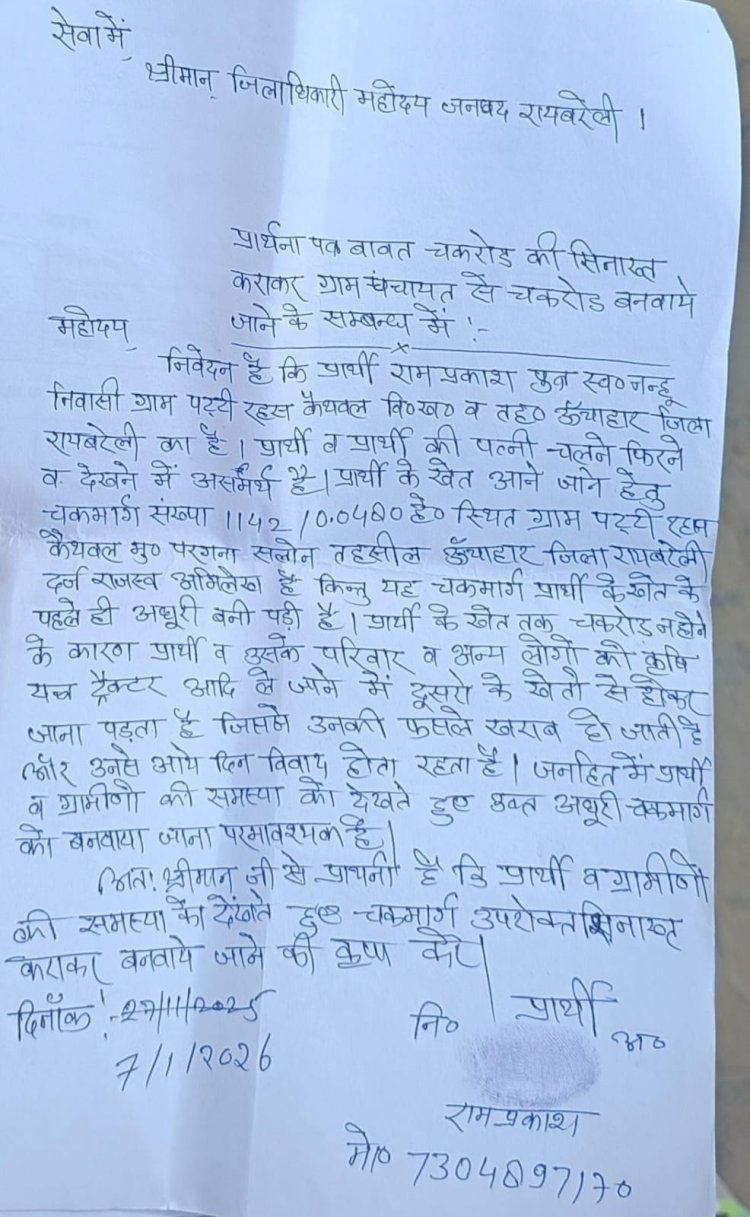 सेवा में,
श्रीमान् जिलाधिकारी महोदय जनपद रायबरेली ।
प्रार्थना पत्र बावत चकरोड की सिनाख्त
कराकर ग्राम पंचायत से चकरोड बनवाये
जाने के सम्बन्ध में :-
महोदय,
निवेदन है कि प्रार्थी राम प्रकाश पुत्र स्व० नन्हू
निवासी ग्राम पट्टी रहस कैथवल वि०ख० व तह० ऊँचाहार जिला
रायबरेली का है । प्रार्थी व प्रार्थी की पत्नी चलने फिरने
व देखने में असमर्थ है । प्रार्थी के खेत आने जाने हेतु
चकमार्ग संख्या 1142/0.0480 हे० स्थित ग्राम पट्टी रहस
कैथवल मु० परगना सलोन तहसील ऊँचाहार जिला रायबरेली
दर्ज राजस्व अभिलेख है किन्तु यह चकमार्ग प्रार्थी के खेत के
पहले ही अधूरी बनी पड़ी है । प्रार्थी के खेत तक चकरोड न होने
के कारण प्रार्थी व उसके परिवार व अन्य लोगो को कृषि
यन्त्र ट्रैक्टर आदि ले जाने में दूसरो के खेतो से होकर
जाना पड़ता है जिससे उनकी फसले खराब हो जाती है
और उनसे आये दिन विवाद होता रहता है । जनहित में प्रार्थी
व ग्रामीणो की समस्या को देखते हुए उक्त अधूरी चकमार्ग
को बनवाया जाना परमावश्यक है ।
अतः श्रीमान जी से प्राथना है कि प्रार्थी व ग्रामीणो
की समस्या को देखते हुए चकमार्ग उपरोक्त सिनाख्त
कराकर बनवाये जाने की कृपा करें ।
दिनाँक :- 27/11/2025
7/1/2026
प्रार्थी
नि० अ०
रामप्रकाश
मो० 7304897170